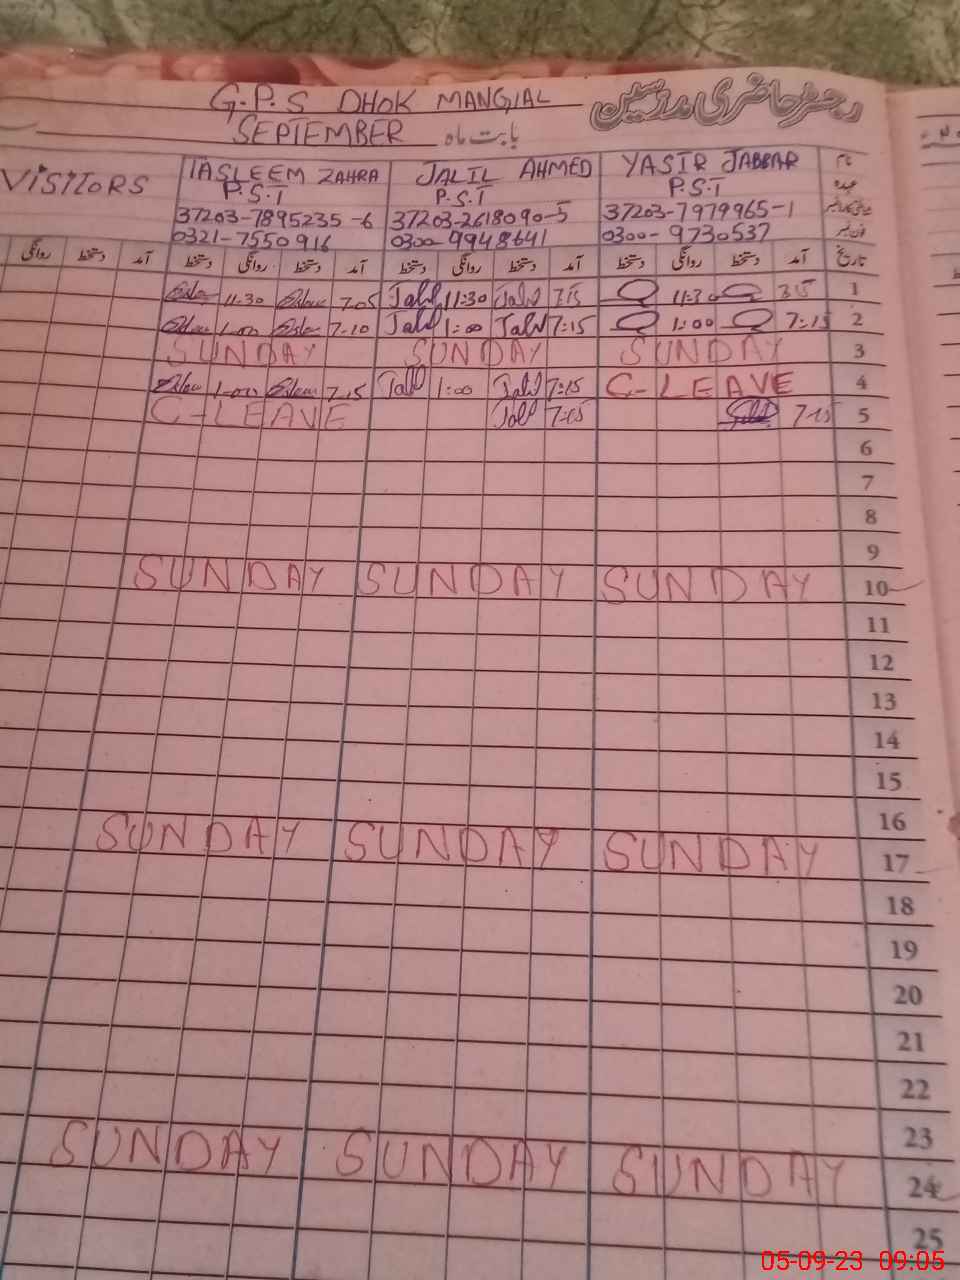 رجسٹر حاضری مدرسین G.P.S DHOK MANGIAL
بابت ماہ SEPTEMBER
نام YASIR JABBAR JALIL AHMED TASLEEM ZAHRA VISITORS
عہدہ P.S.T P.S.T P.S.T
37203-7979965-1 37203-2618090-5 37203-7895235-6
فون نمبر 0300-9730537 0300-9948641 0321-7550916
تاریخ آمد دستخط روانگی دستخط آمد دستخط روانگی دستخط آمد دستخط روانگی دستخط آمد دستخط روانگی
1 7:15 11:30 7:15 Jalil 11:30 Jalil 7.05 11.30
2 7:15 1:00 7:15 Jalil 1:00 Jalil 7-10 1.00
3 SUNDAY SUNDAY SUNDAY
4 C-LEAVE 7:15 Jalil 1:00 Jalil 7.15 1.00
5 7:15 7:15 Jalil C-LEAVE
6
7
8
9
10 SUNDAY SUNDAY SUNDAY
11
12
13
14
15
16
17 SUNDAY SUNDAY SUNDAY
18
19
20
21
22
23
24 SUNDAY SUNDAY SUNDAY
25
05-09-23 09:05